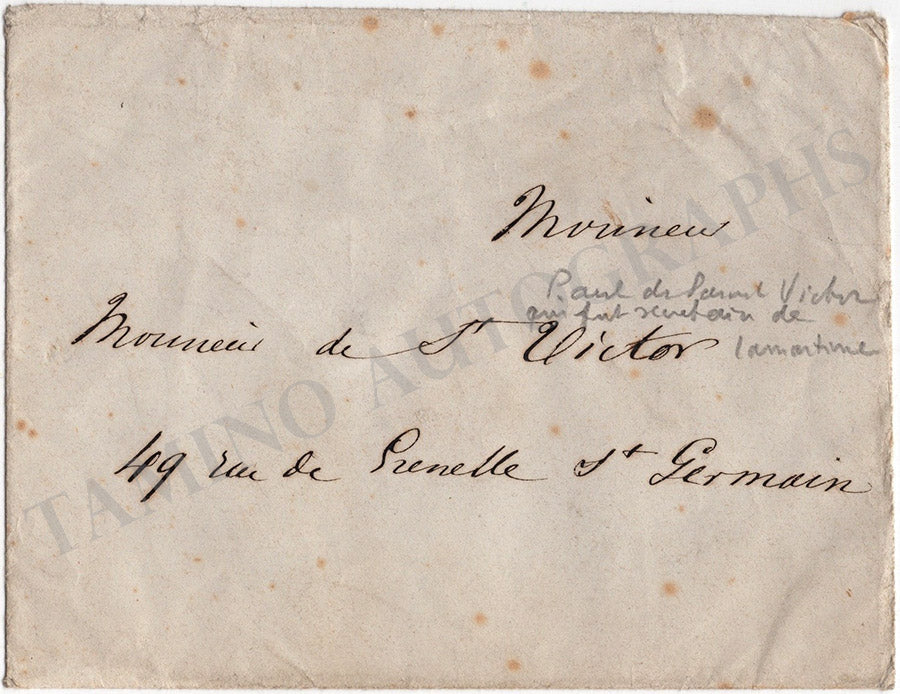 Monsieur
Paul de Saint Victor
qui fut secretaire de
Lamartine
Monsieur de St Victor
49 rue de Grenelle St Germain
TAMINO AUTOGRAPHS